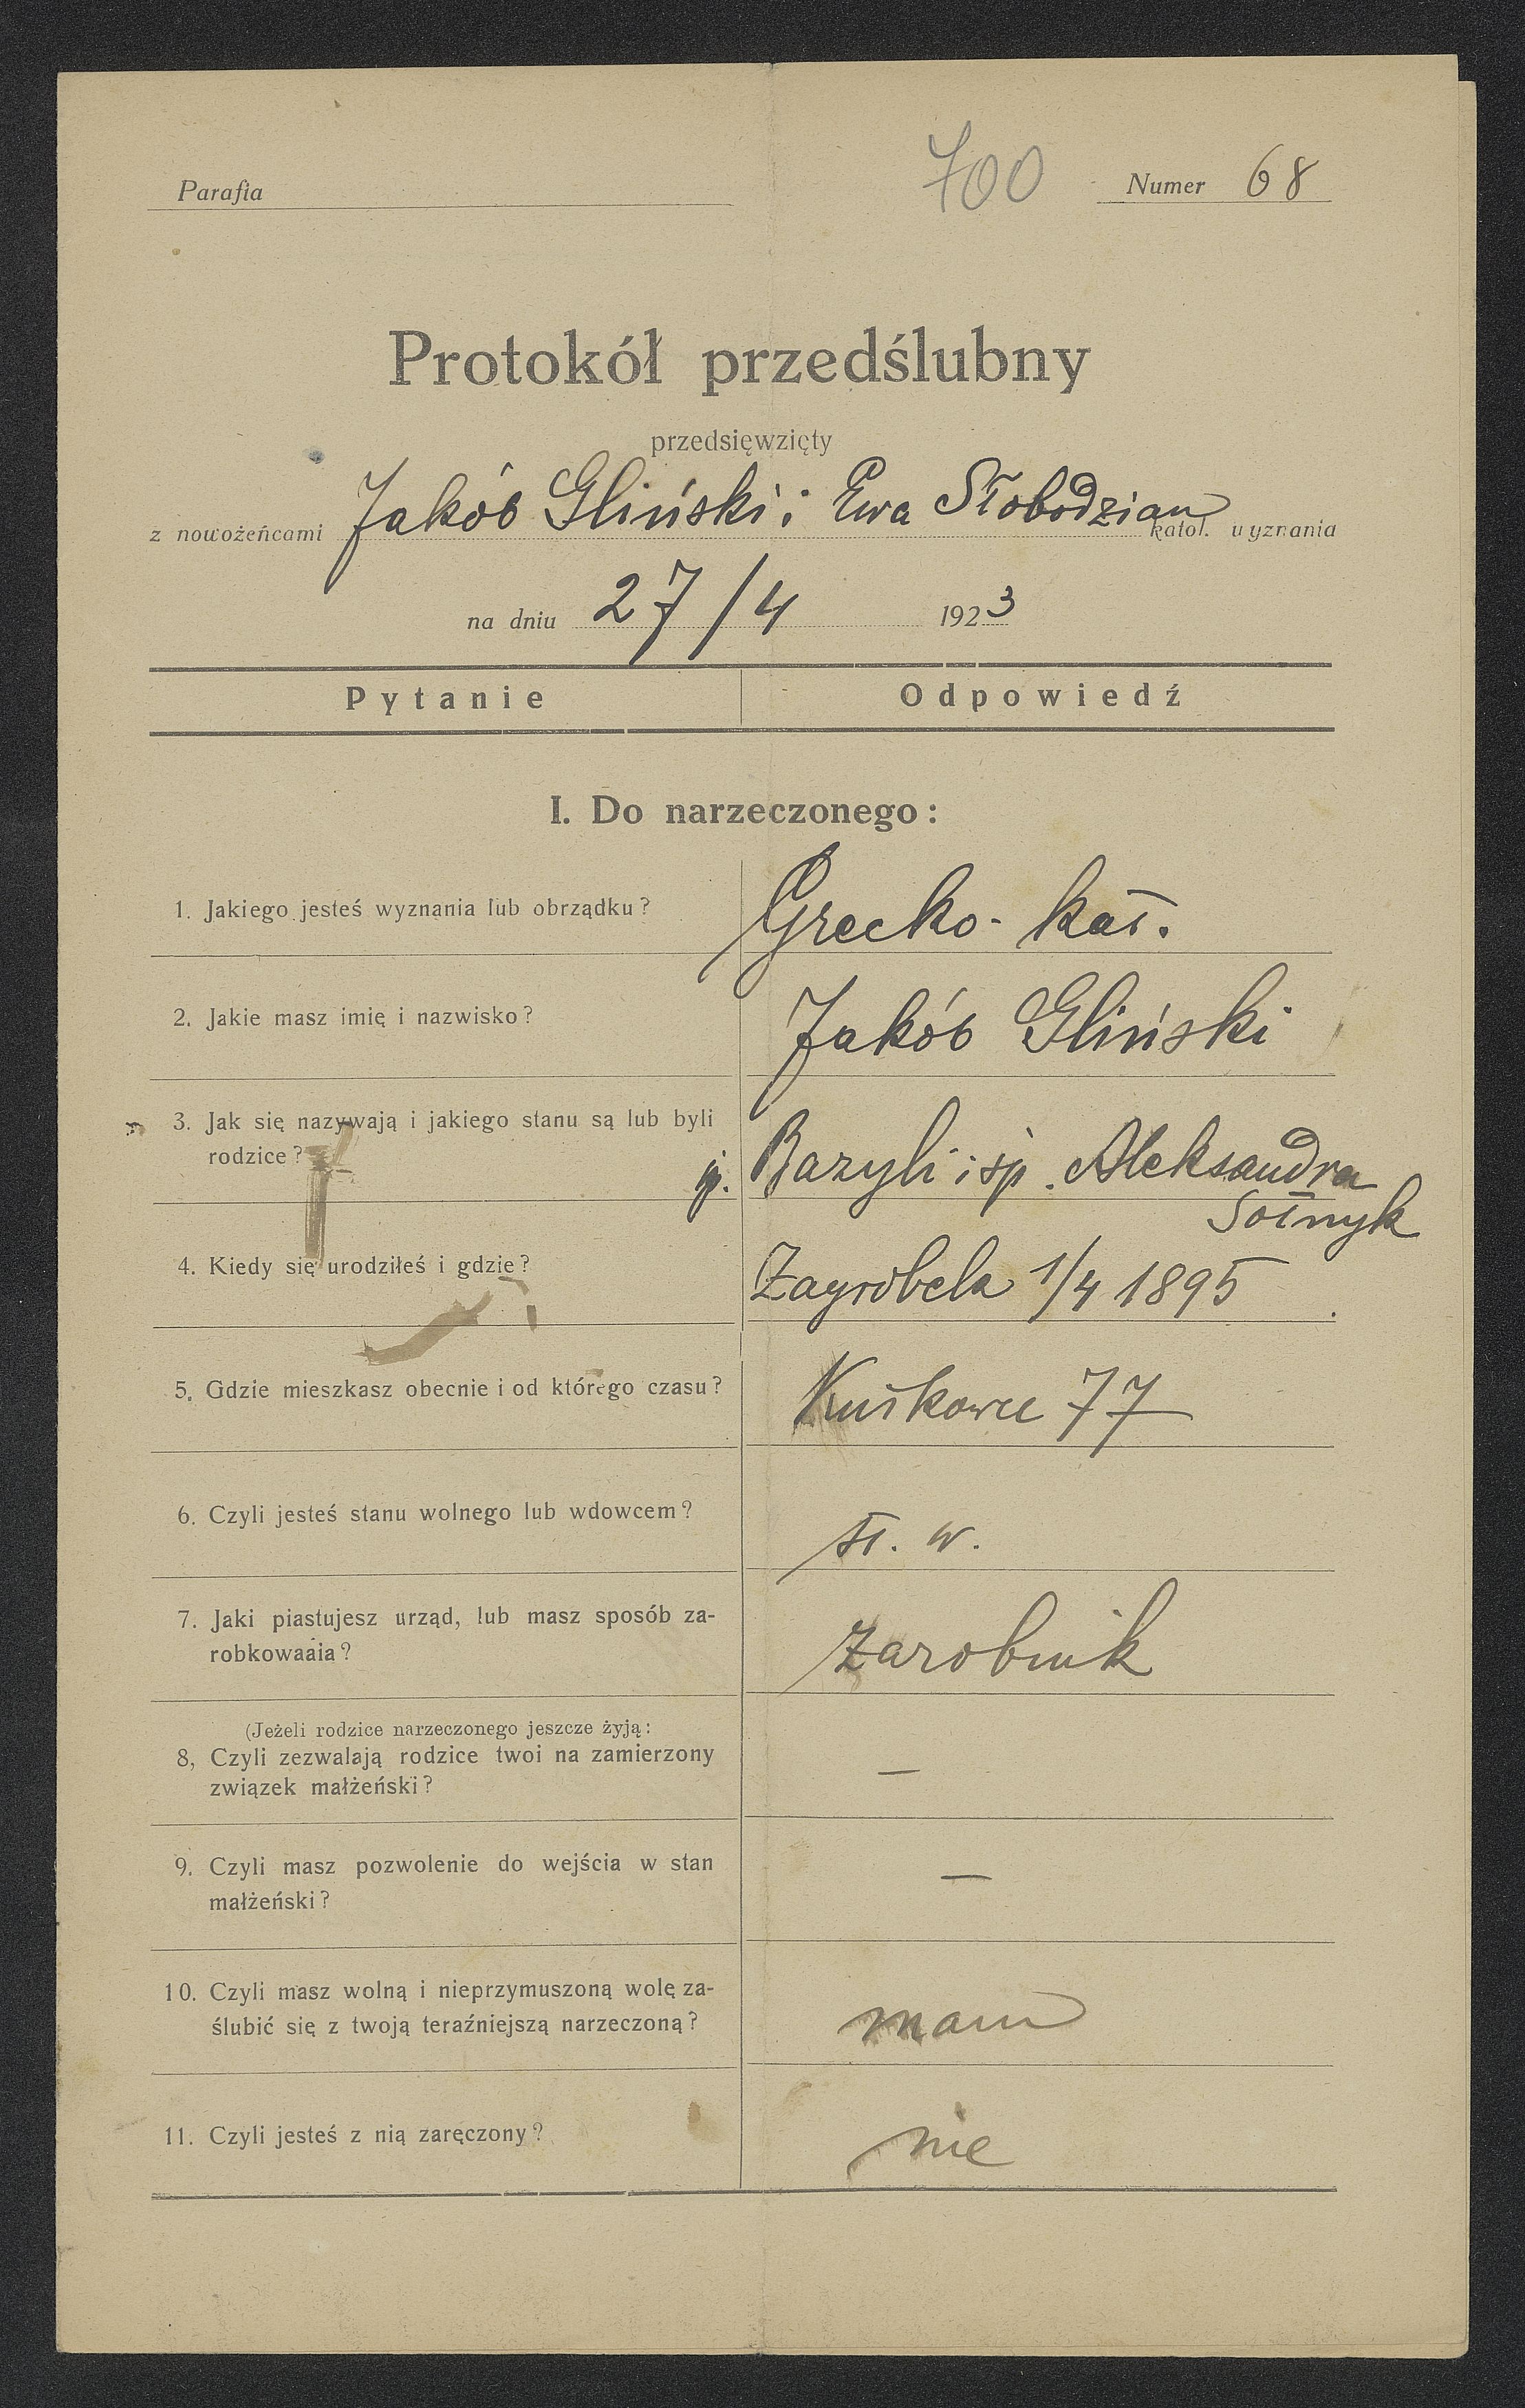 Parafia
700
Numer 68
Protokół przedślubny
przedsięwzięty
z nowożeńcami Jakób Gliński i Ewa Słobodzian katol. wyznania
na dniu 27/4 1923
Pytanie Odpowiedź
I. Do narzeczonego:
1. Jakiego jesteś wyznania lub obrządku? Grecko-kat.
2. Jakie masz imię i nazwisko? Jakób Gliński
3. Jak się nazywają i jakiego stanu są lub byli
rodzice? śp. Bazyli i śp. Aleksandra
Sotnyk
4. Kiedy się urodziłeś i gdzie? Zagrobela 1/4 1895
5. Gdzie mieszkasz obecnie i od którego czasu? Kutkowce 77
6. Czyli jesteś stanu wolnego lub wdowcem? st. w.
7. Jaki piastujesz urząd, lub masz sposób za-
robkowaaia? zarobnik
(Jeżeli rodzice narzeczonego jeszcze żyją:
8, Czyli zezwalają rodzice twoi na zamierzony
związek małżeński? —
9. Czyli masz pozwolenie do wejścia w stan
małżeński? —
10. Czyli masz wolną i nieprzymuszoną wolę za-
ślubić się z twoją teraźniejszą narzeczoną? mam
11. Czyli jesteś z nią zaręczony? nie